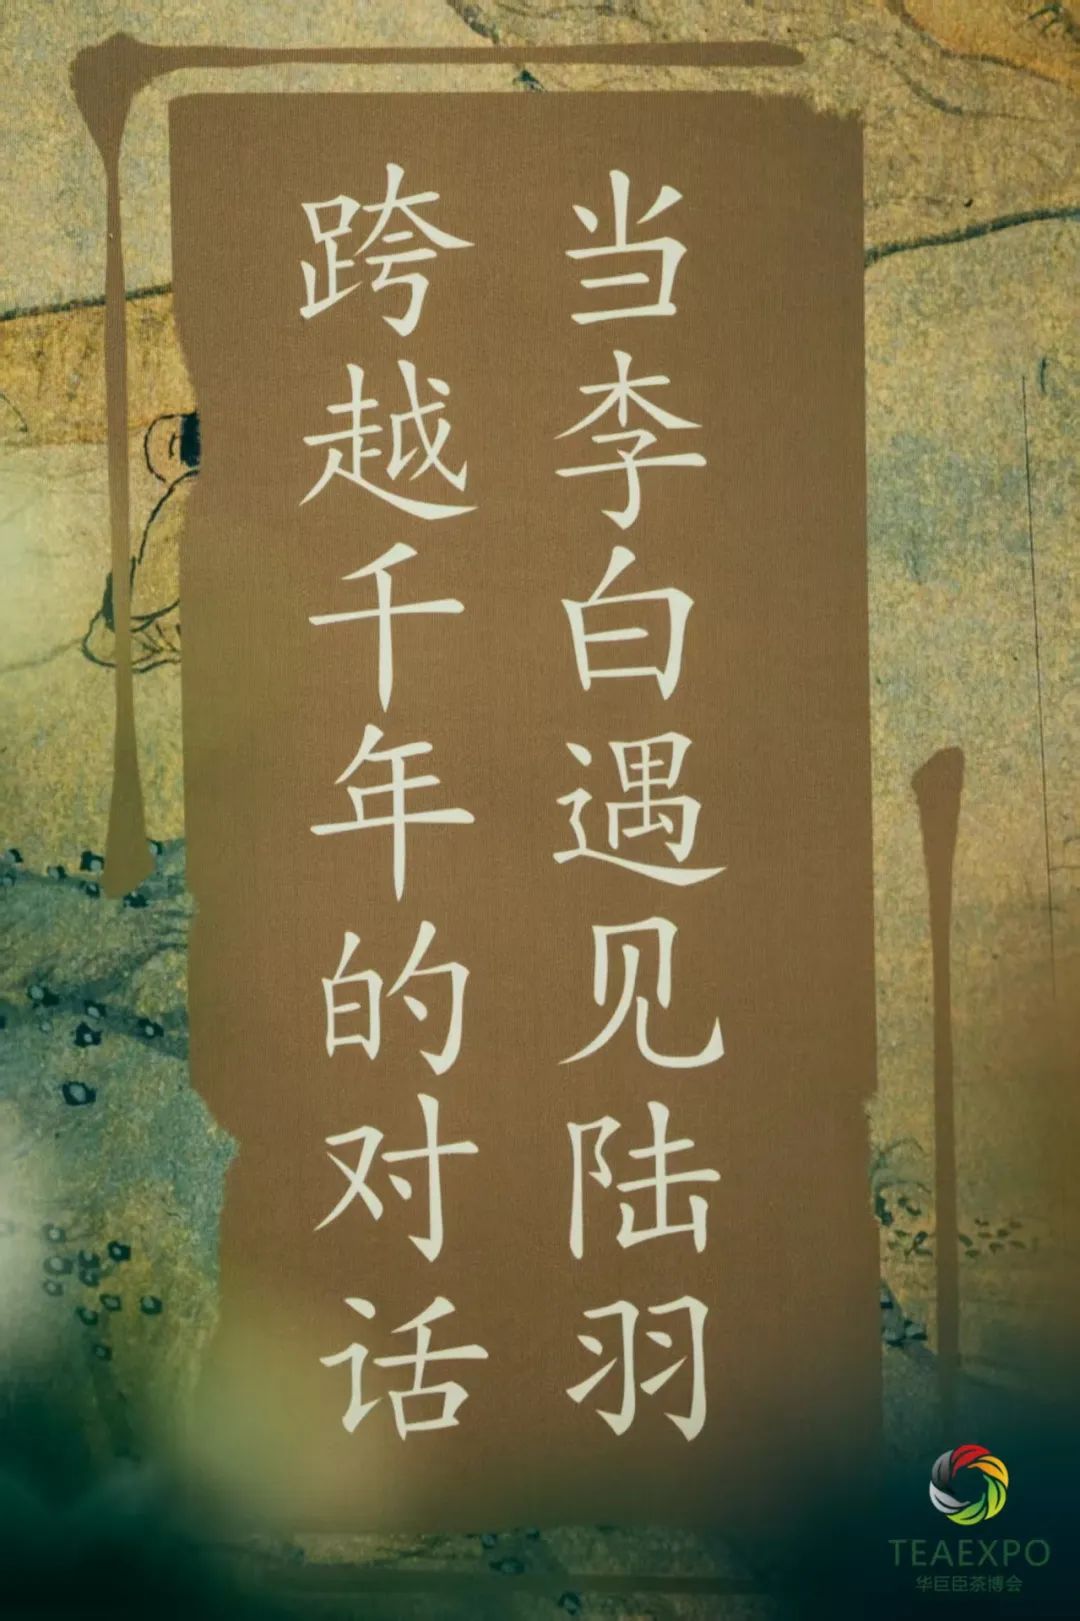 当李白遇见陆羽
跨越千年的对话
TEAEXPO
华巨臣茶博会